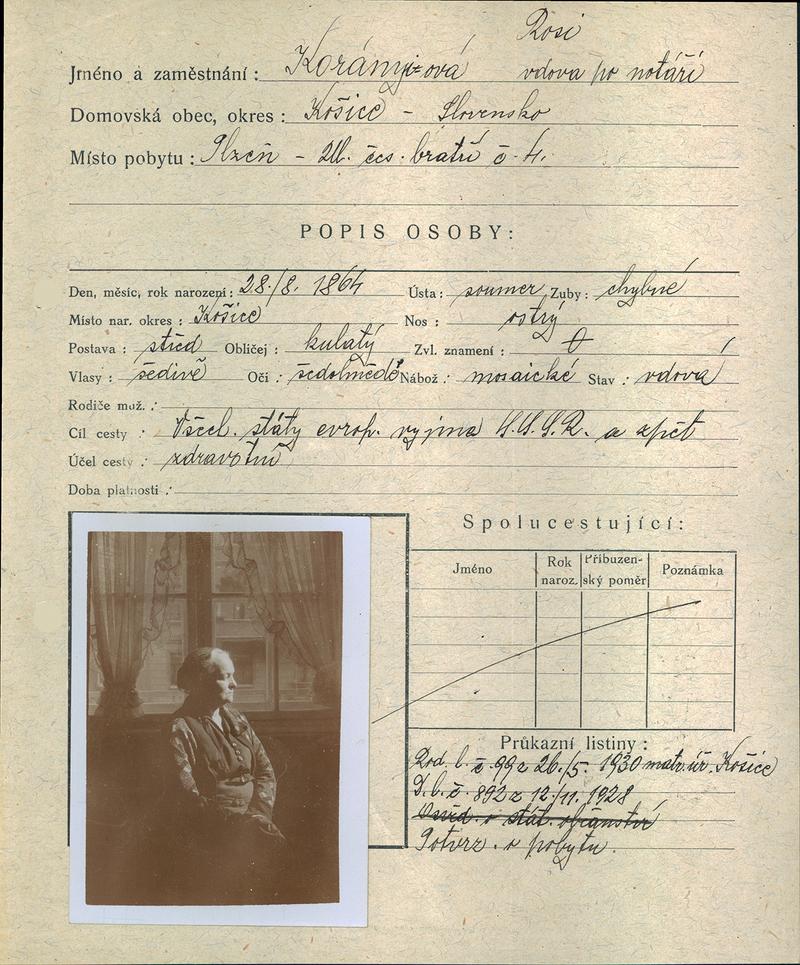 Rosi
Jméno a zaměstnání : Korányiová vdova po notáři
Domovská obec, okres : Košice - Slovensko
Místo pobytu : Plzeň - Ul. čes. bratří č. 4.
POPIS OSOBY:
Den, měsíc, rok narození : 28./8. 1864 Ústa : soumer. Zuby : chybné
Místo nar. okres : Košice Nos : ostrý
Postava : střed Obličej : kulatý Zvl. znamení : 0
Vlasy : šedivé Oči : šedohnědé Nábož. : mosaické Stav : vdova
Rodiče mož. :
Cíl cesty : Všecl. státy evrop. vyjma S.S.S.R. a zpět
Účel cesty : zdravotní
Doba platnosti :
Spolucestující:
Jméno Rok naroz. Příbuzenský poměr Poznámka
Průkazní listiny :
Rod. l. č. 99 z 26./5. 1930 matr. úr. Košice
D. l. č. 892 z 12./11. 1928
Osvěd. o stát. občanství
Potvrz. o pobytu.